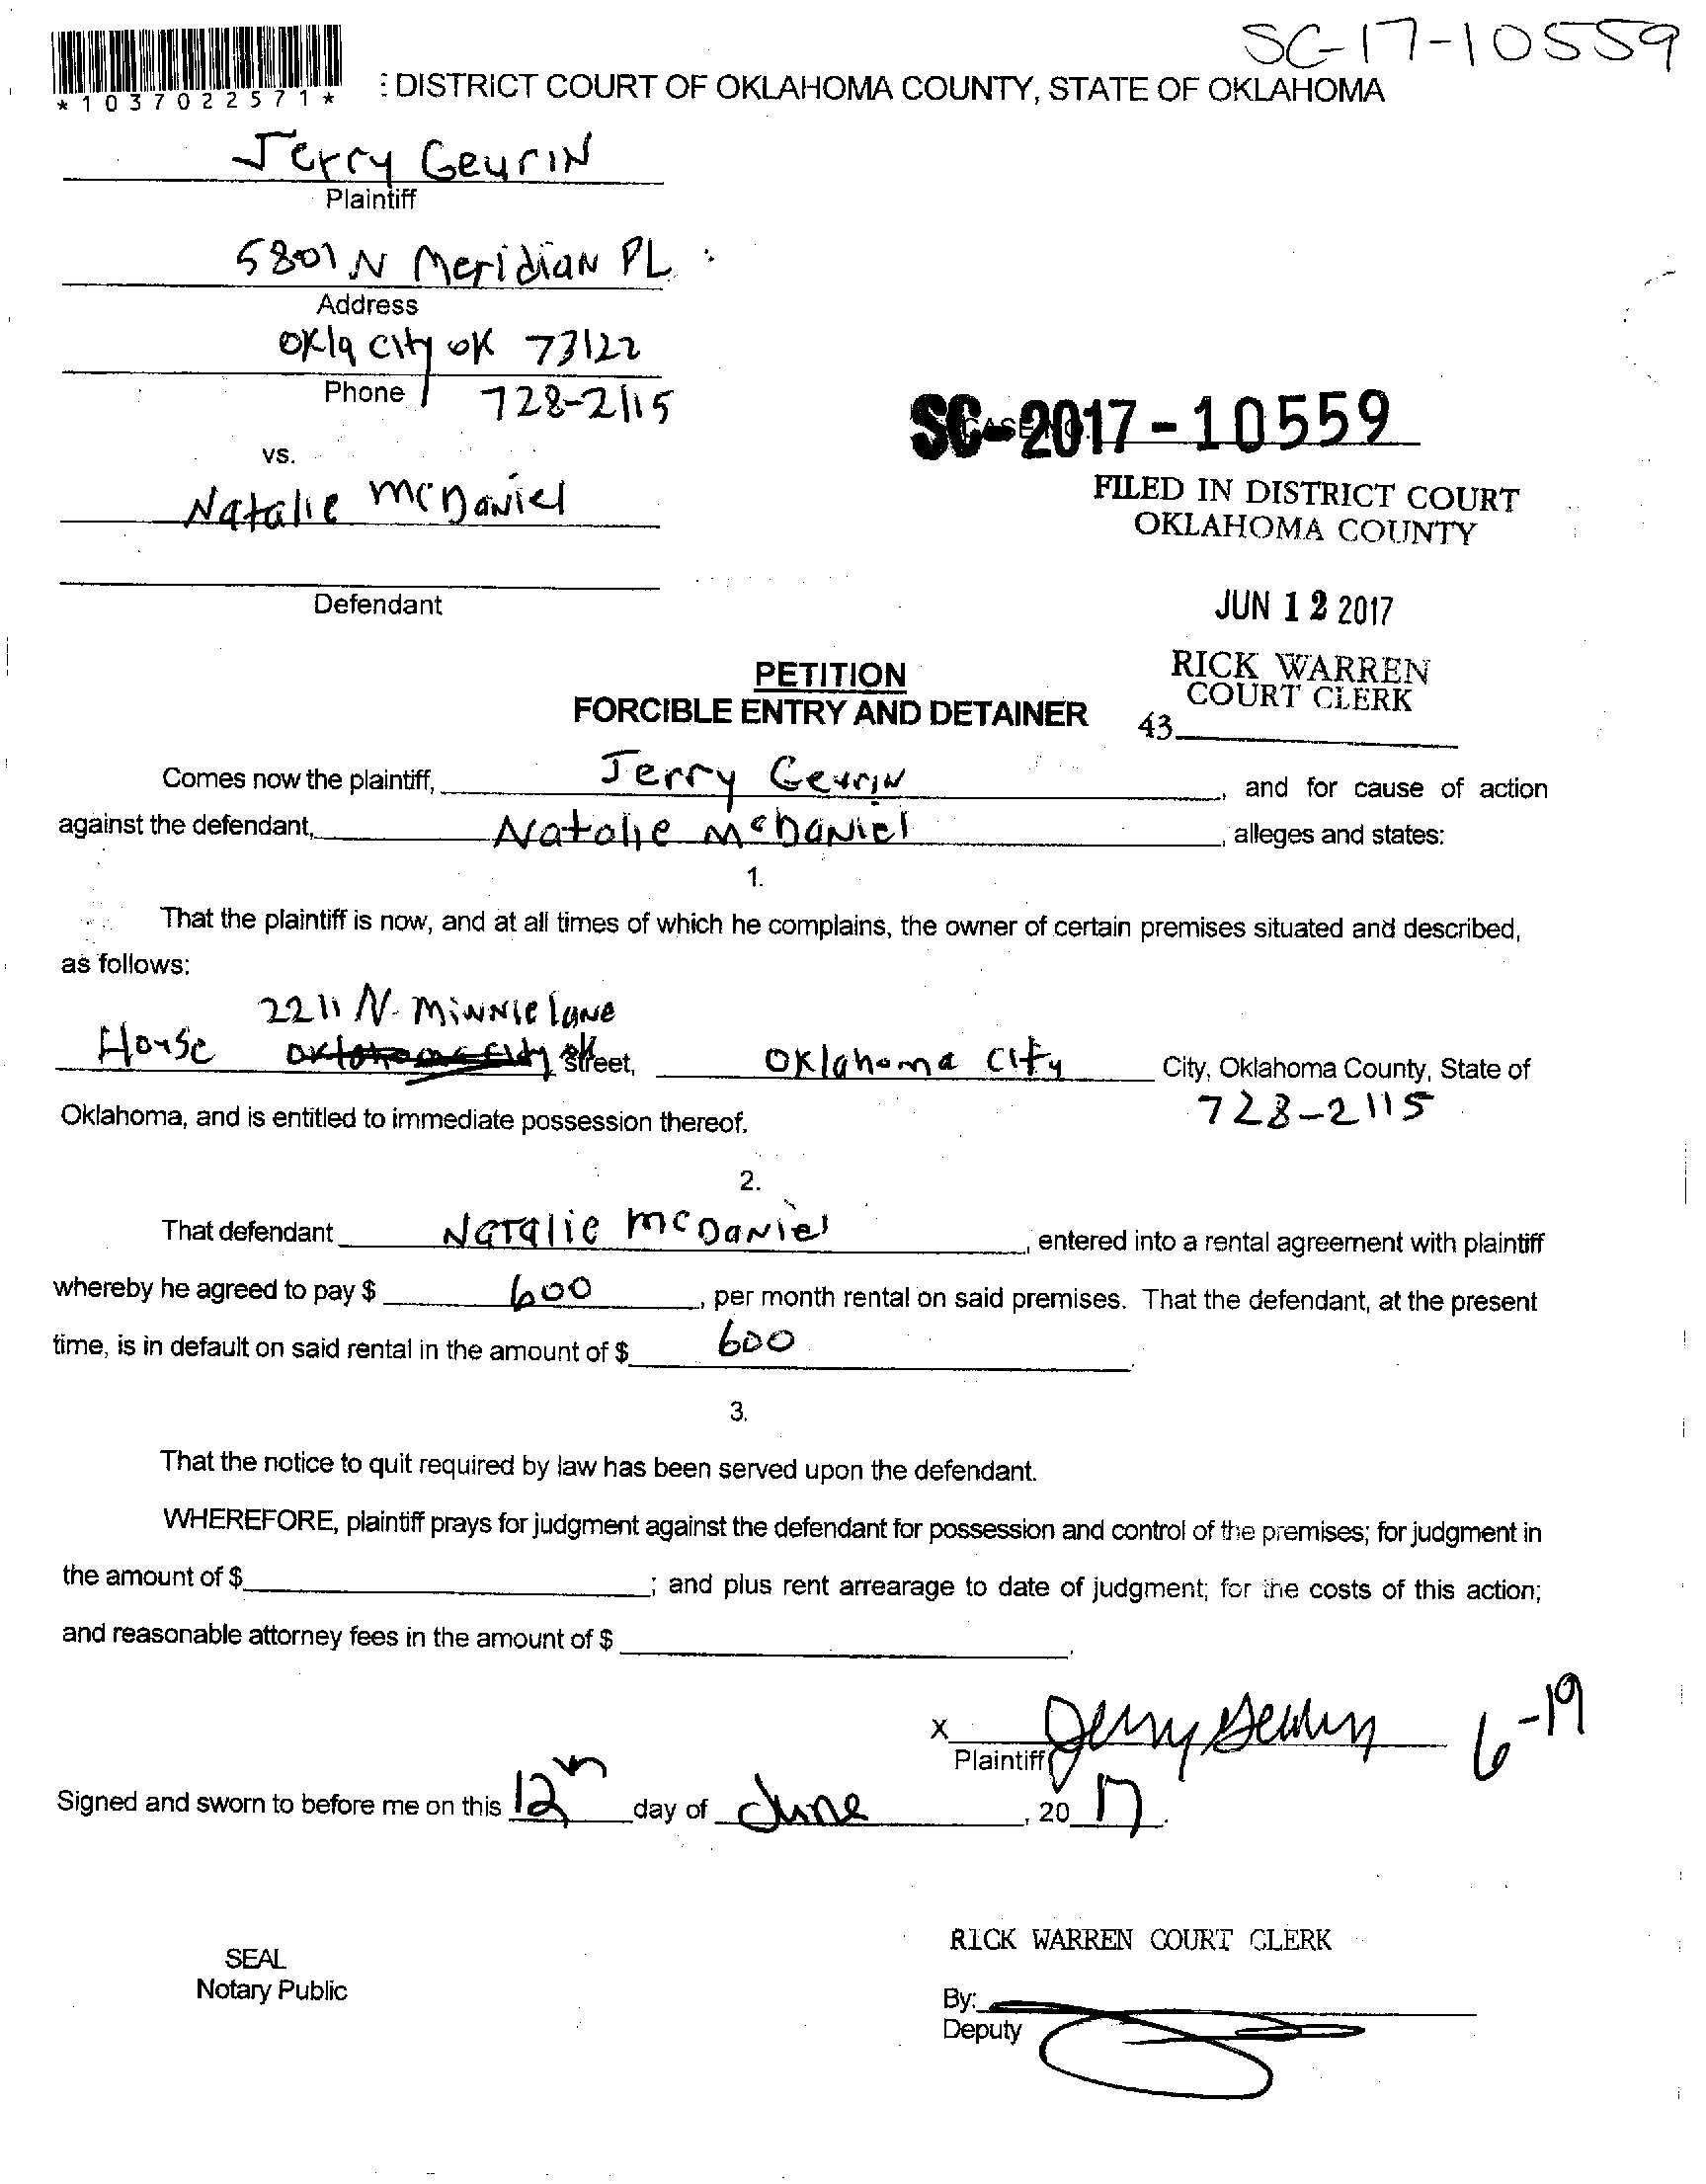 SC-17-10559
*1037022571*
: DISTRICT COURT OF OKLAHOMA COUNTY, STATE OF OKLAHOMA
Jerry Geurin
Plaintiff
5801 N Meridian PL
Address
Okla City OK 73122
Phone 728-2115
vs.
SC-2017-10559
Natalie McDaniel
FILED IN DISTRICT COURT
OKLAHOMA COUNTY
Defendant
JUN 12 2017
PETITION
FORCIBLE ENTRY AND DETAINER
RICK WARREN
COURT CLERK
43
Comes now the plaintiff, Jerry Geurin, and for cause of action
against the defendant, Natalie McDaniel, alleges and states:
1.
That the plaintiff is now, and at all times of which he complains, the owner of certain premises situated and described,
as follows:
2211 N. Minnie lane
House street, Oklahoma City City, Oklahoma County, State of
Oklahoma, and is entitled to immediate possession thereof. 728-2115
2.
That defendant Natalie McDaniel, entered into a rental agreement with plaintiff
whereby he agreed to pay $ 600, per month rental on said premises. That the defendant, at the present
time, is in default on said rental in the amount of $ 600.
3.
That the notice to quit required by law has been served upon the defendant.
WHEREFORE, plaintiff prays for judgment against the defendant for possession and control of the premises; for judgment in
the amount of $ ; and plus rent arrearage to date of judgment; for the costs of this action;
and reasonable attorney fees in the amount of $ .
x Jerry Geurin 6-19
Plaintiff
Signed and sworn to before me on this 12th day of June, 2017.
RICK WARREN COURT CLERK
SEAL
Notary Public
By:
Deputy